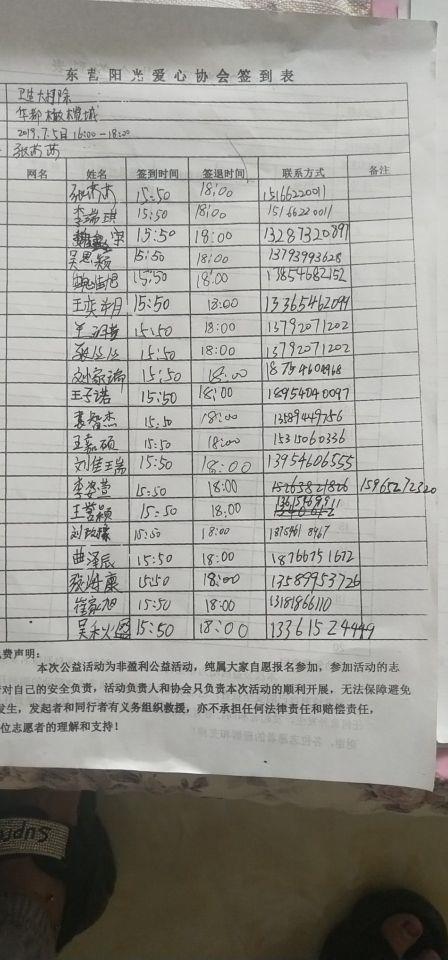 东营阳光爱心协会签到表
卫生大扫除
华都橄榄城
2019.7.5日 16:00-18:00
网名 姓名 签到时间 签退时间 联系方式 备注
15:50 18:00 15166220011
李瑞琪 15:50 18:00 15166220011
15:50 18:00 13287320897
吴思颖 15:50 18:00 13793993628
15:50 18:00 13854682152
王奕 15:50 18:00 13365462094
15:50 18:00 13792071202
15:50 18:00 13792071202
刘家瑞 15:50 18:00
王子诺 15:50 18:00 18954040097
袁智杰 15:50 18:00 13589449756
王嘉硕 15:50 18:00 15315060336
刘佳瑞 15:50 18:00 13954606555
李姿萱 15:50 18:00 15965272320
王誉颖 15:50 18:00 13615469911
15:50 18:00
曲泽辰 15:50 18:00 18766751672
张海康 15:50 18:00 13589953726
崔家旭 15:50 18:00 13181866110
吴秋 15:50 18:00 13361524449
费声明:
本次公益活动为非盈利公益活动，纯属大家自愿报名参加，参加活动的志
对自己的安全负责，活动负责人和协会只负责本次活动的顺利开展，无法保障避免
发生，发起者和同行者有义务组织救援，亦不承担任何法律责任和赔偿责任，
位志愿者的理解和支持!